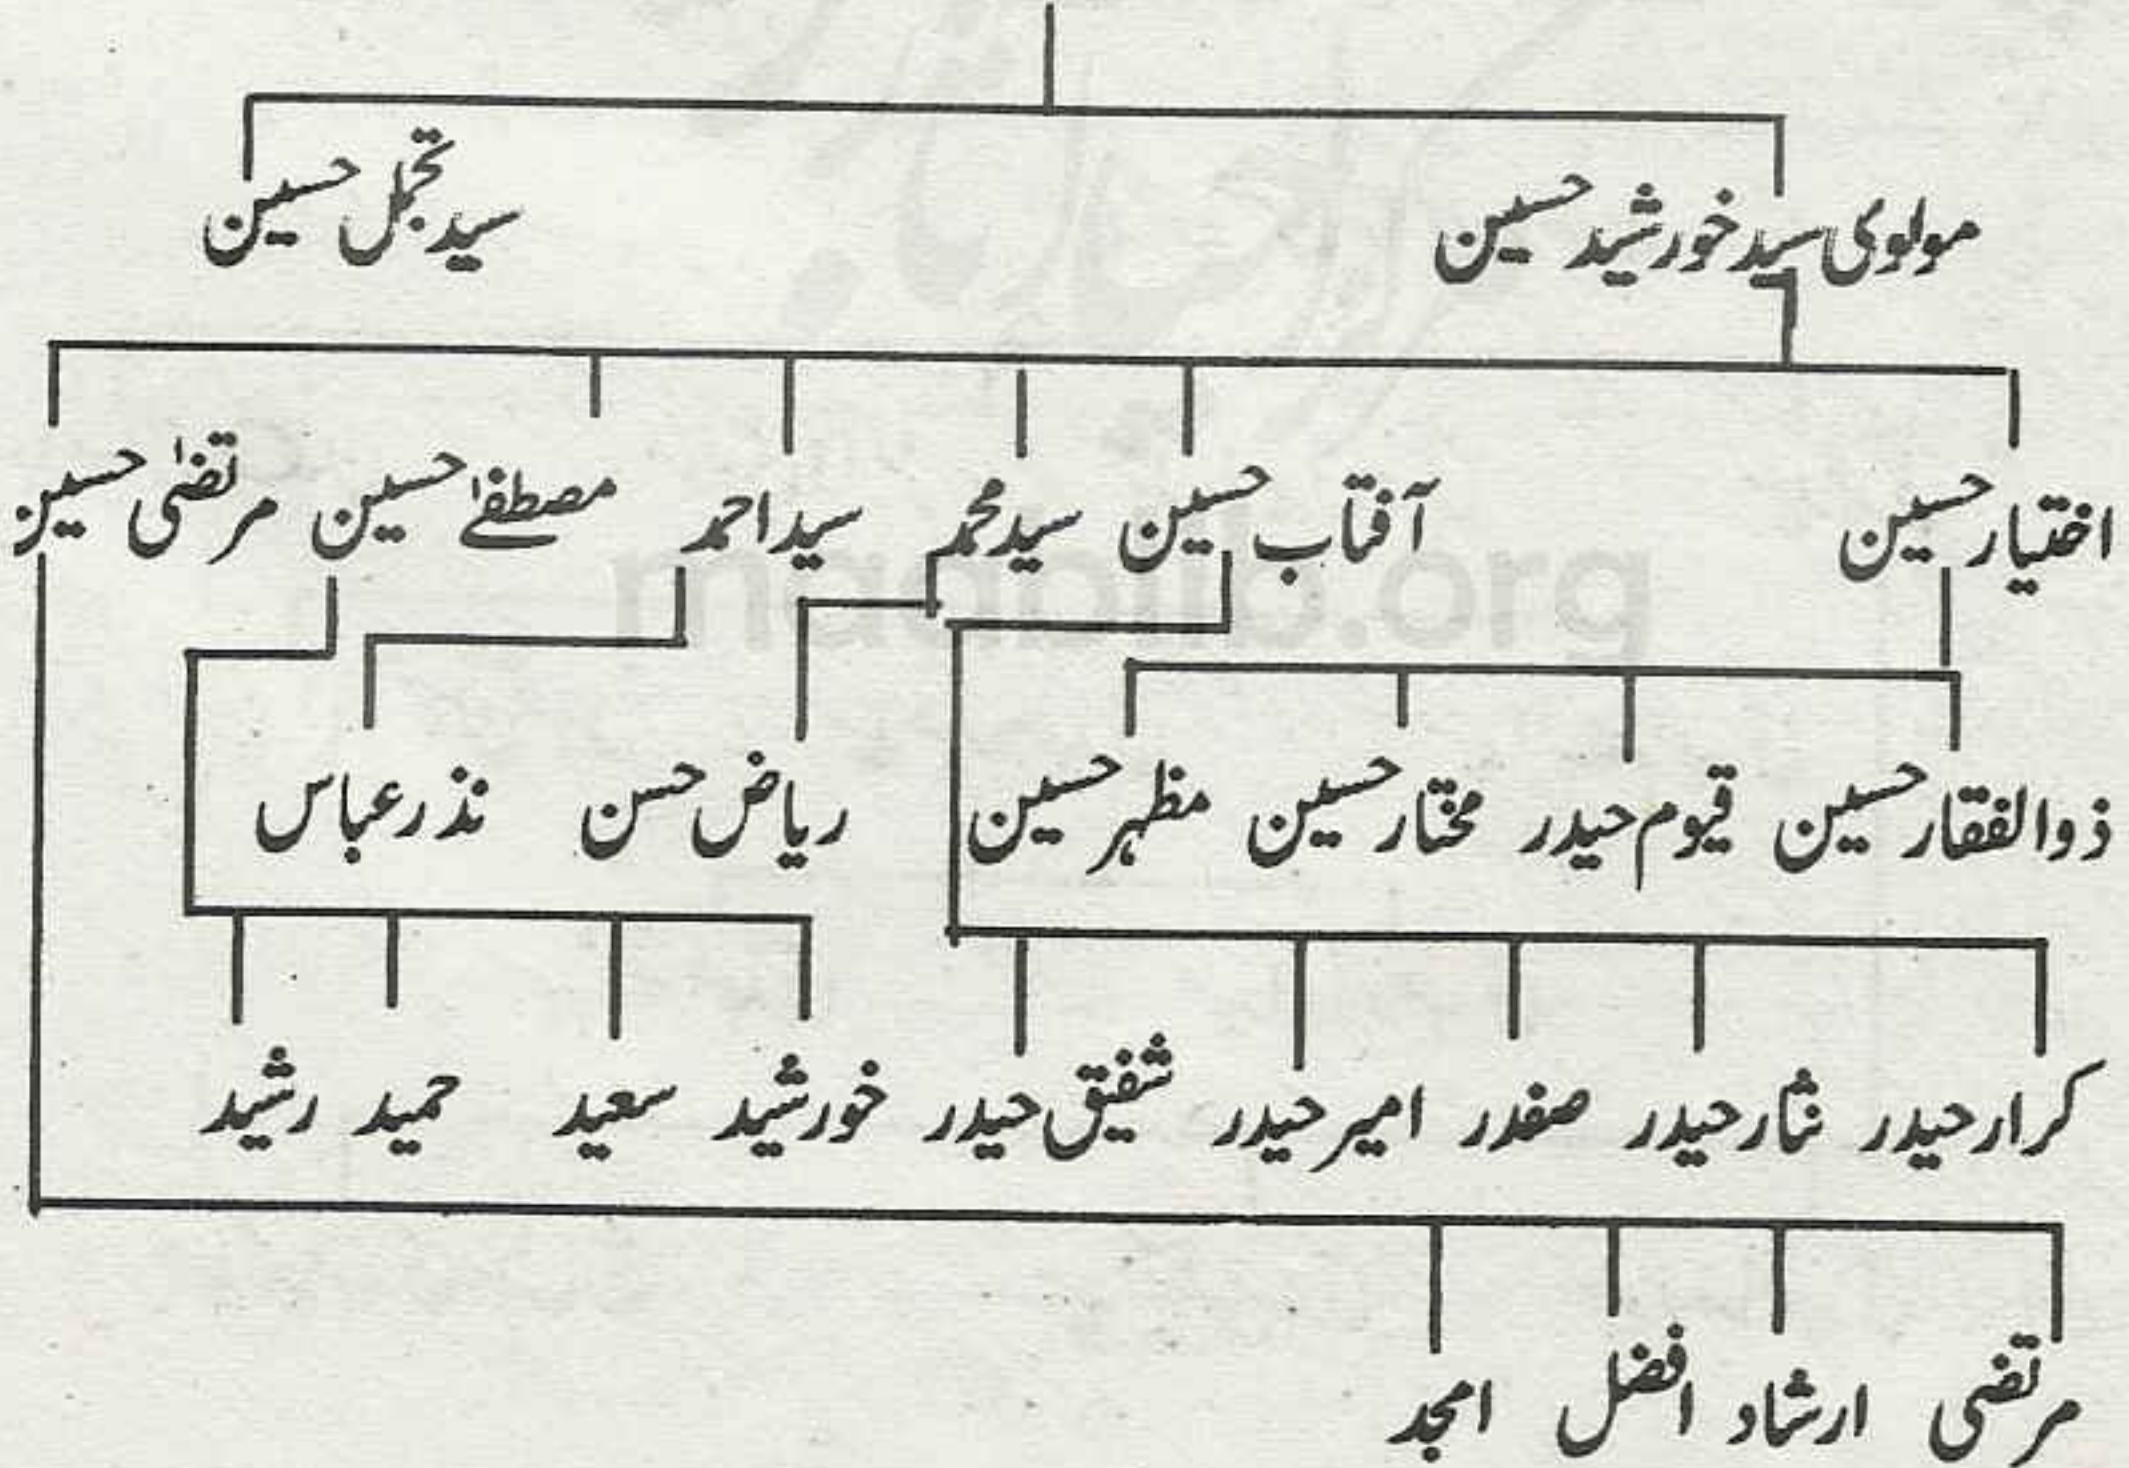 مولوی سید خورشید حسین سید تجمل حسین
اختیار حسین آفتاب حسین سید محمد سید احمد مصطفےٰ حسین مرتضٰی حسین
maablib.org
ذوالفقار حسین قیوم حیدر مختار حسین مظہر حسین ریاض حسن نذر عباس
کرار حیدر نثار حیدر صفدر امیر حیدر شفیق حیدر خورشید سعید حمید رشید
مرتضی ارشاد افضل امجد